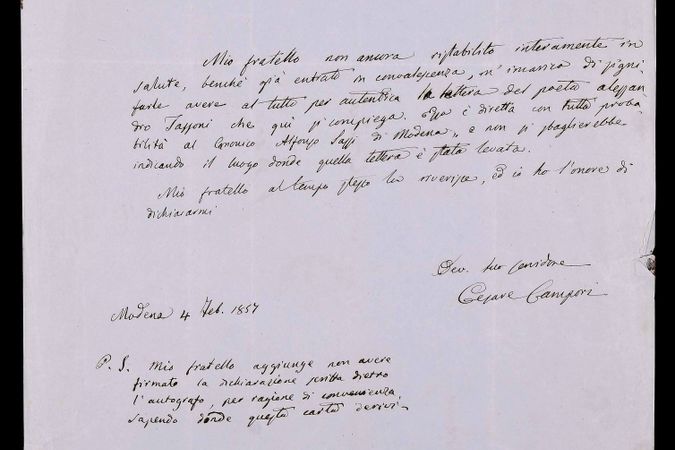 Mio fratello non ancora ristabilito interamente in
salute, benchè già entrato in convalescenza, m'incarica di signi-
farle avere al tutto per autentica la lettera del poeta Alessan-
dro Tassoni che qui si compiega. essa è diretta con tutta proba-
bilità al Canonico Alfonso Sassi di Modena, e non si sbaglierebbe
indicando il luogo donde quella lettera è stata levata.
Mio fratello al tempo stesso la riverisce, ed io ho l'onore di
dichiararmi
Dev. suo servidore
Cesare Campori
Modena 4 Feb. 1857
P. S. Mio fratello aggiunge non avere
firmato la dichiarazione scritta dietro
l'autografo, per ragione di convenienza,
sapendo donde questa carta derivi-